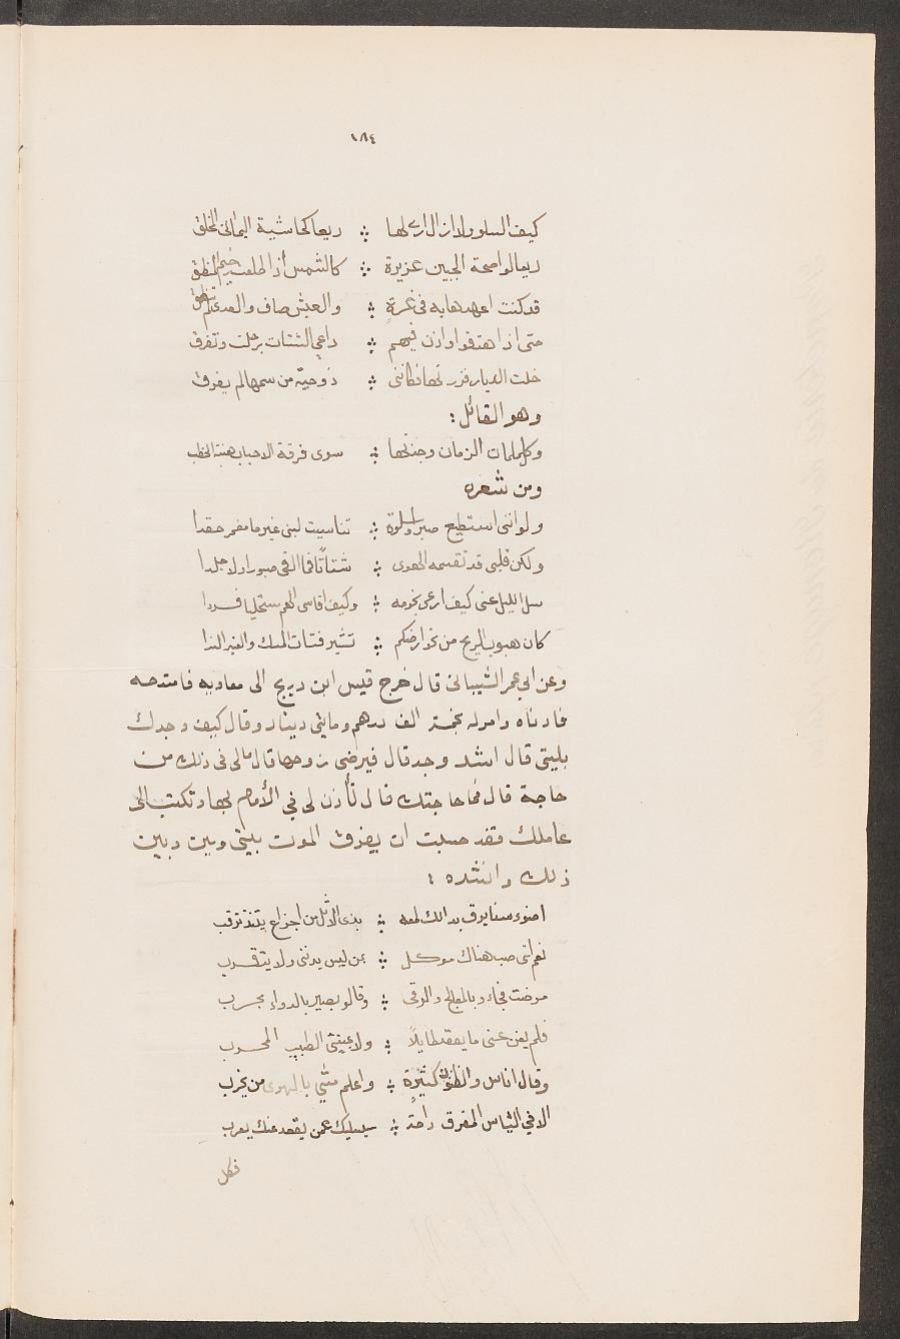 ١٨٤
كيف السلو ولا ازال ارى لها ؞ ربعا كحاشية اليمانى المخلق
ربعا لواضحة الجبين عزيزة ؞ كالشمس اذا طلعت رخيم المنطق
قد كنت اعهدها به فى غرة ؞ والعيش صاف والعدى لم تنطق
حتى اذا هتفوا واذن فيهم ؞ داعي الشتات برحلت وتفرق
خلت الديار فزرتها فكانني ؞ ذو حية من سمها لم يفرق
وهو القائل :
وكل ملمات الزمان وجدتها ؞ سوى فرقة الاحباب هينة الخطب
ومن شعره
ولو اننى استطيع صبرا وسلوة ؞ تناسيت لبنى غير ما مضمر حقدا
ولكن قلبى قد تقسمه الهوى ؞ شتاتا فما الفى صبورا ولا جلدا
سل الليل عنى كيف ارعى نجومه ؞ وكيف اقاسى الهم مستخليا فردا
كان هبوب الريح من نحو ارضكم ؞ تشير فتات المسك والعنبر الندا
وعن ابى عمر الشيبانى قال خرج قيس ابن دريج الى معاويه فامتدحه
فادناه وامر له بخمسة الف درهم ومايتي دينار وقال كيف وجدك
بلبنى قال اشد وجد قال فيرضى زوجها قال مالى فى ذلك من
حاجة قال فما حاجتك قال تأذن لى في الألمام بها وتكتب الى
عاملك فقد حسبت ان يفرق الموت بينى وبين وبين
ذلك وانشده :
اضوء سنا برق بدا لك لمعه ؞ بذى الاثل من اجزاع يتنذ ترقب
نعم انى صب هناك موكل ؞ بمن ليس يدننى ولا يتقرب
مرضت فجاءو بالمعالج والرقى ؞ وقالو بصير بالدواء مجرب
فلم يغن عنى ما يعقد طايلًا ؞ ولا عينتنى الطبيب المجرب
وقال اناس والظنون كثيرة ؞ واعلم شئي بالهوى من يجرب
الا في الثياس المفرق راحة ؞ سيسليك عمن يقعد عنك يعرب
فكل